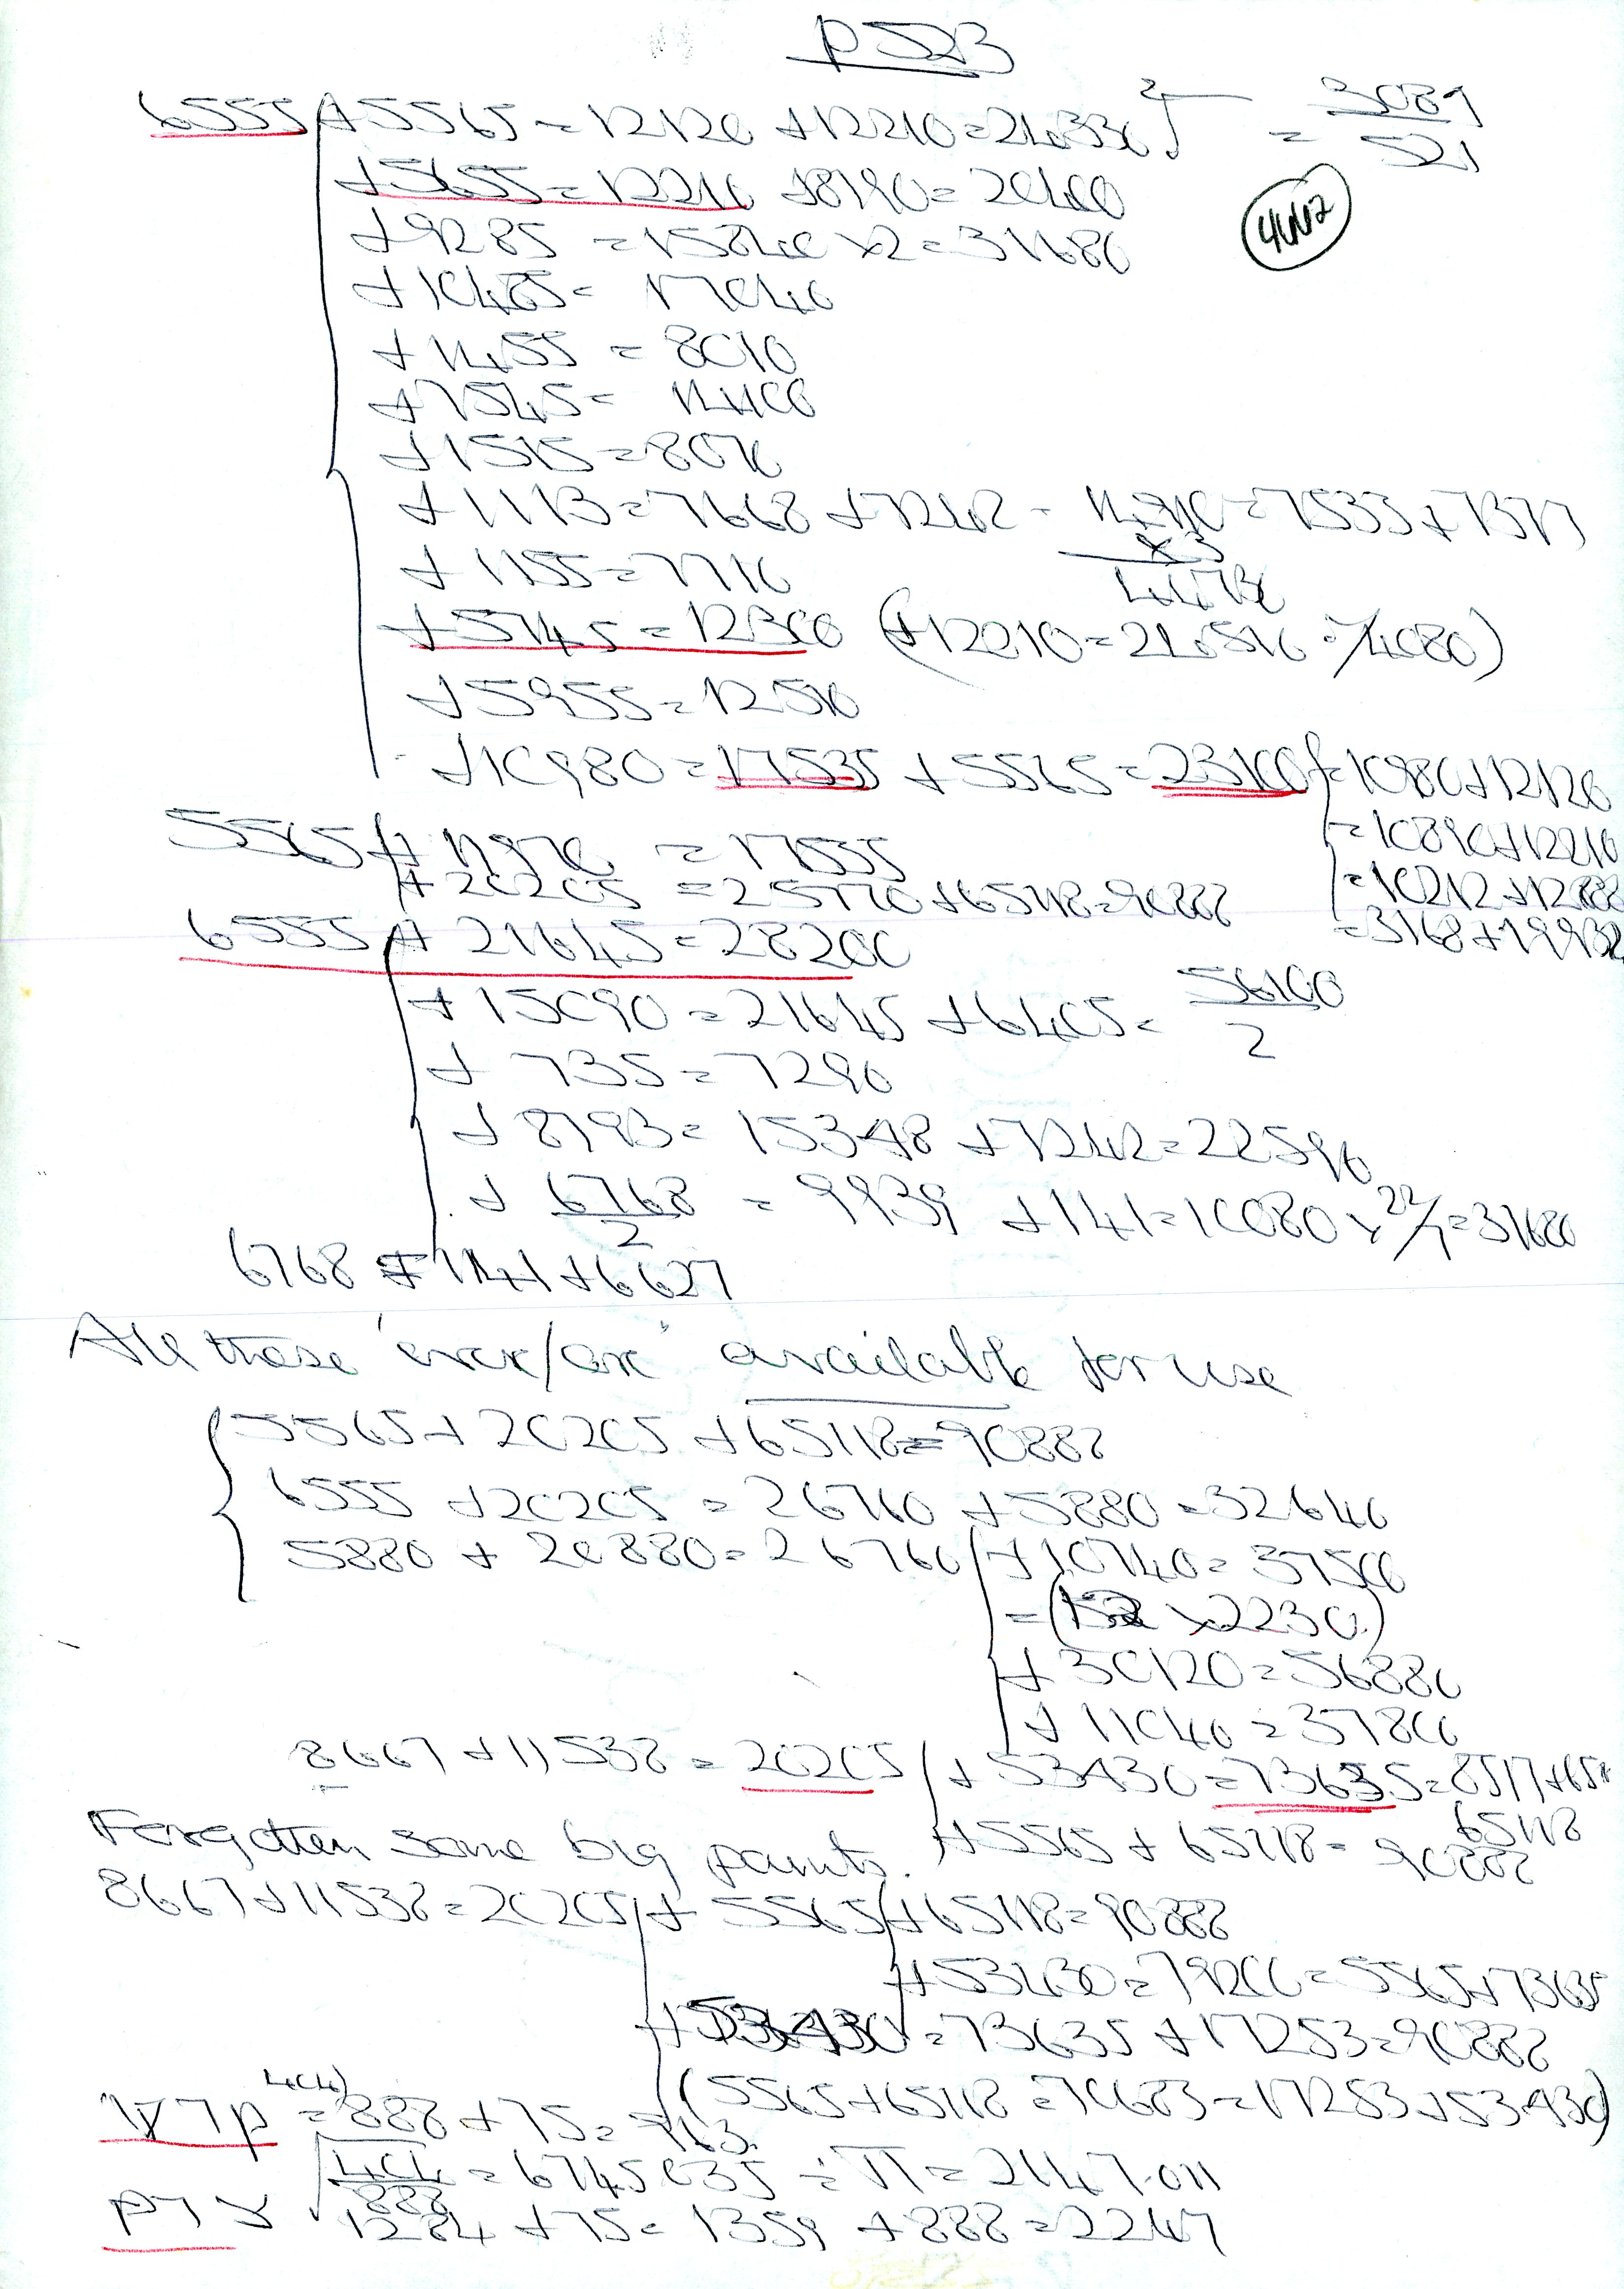 P523
6555 + 5565 = 12120 + 12210 = 24330
= 3089 / 521
+ 5655 = 12210 + 8190 = 20400
+ 9285 = 15840 x2 = 31680
+ 10485 = 17040
+ 1455 = 8010
+ 7545 = 14100
+ 1515 = 8070
+ 1113 = 7668 + 7242 = 14910 = 7533 + 7377
x 3
+ 1155 = 7710
44730
+ 5745 = 12300 (+ 12210 = 24510 ÷/4080)
+ 5955 = 12510
+ 10980 = 17535 + 5565 = 23100 = 10980 + 12120
= 10890 + 12210
= 10212 + 12888
= 3168 + 19932
5565 + 11970 = 17535
+ 20205 = 25770 + 65118 = 90888
6555 + 21645 = 28200
+ 15090 = 21645 + 6405 = 56100 / 2
+ 735 = 7290
+ 8793 = 15348 + 7242 = 22590
+ 6768 / 2 = 9939 + 141 = 10080 x 22/7 = 31680
6768 = 141 + 6627
All these 'error/ore' available for use
5565 + 20205 + 65118 = 90888
6555 + 20205 = 26760 + 5880 = 32640
5880 + 20880 = 26760 + 10740 = 37500
= (12 x 2230)
+ 30120 = 56880
+ 11040 = 37800
8667 + 11538 = 20205 + 53430 = 73635 = 8517 + 65118
+ 5565 + 65118 = 90888
Forgotten some big points.
8667 + 11538 = 20205 + 5565 + 65118 = 90888
+ 53430 = 79200 = 5565 + 73635
+ 53430 = 73635 + 17253 = 90888
(5565 + 65118 = 70683 = 17253 + 53430)
= 888 + 75 = 963
404/888 = 6745035 ÷ π = 2147.011
1284 + 75 = 1359 + 888 = 2247